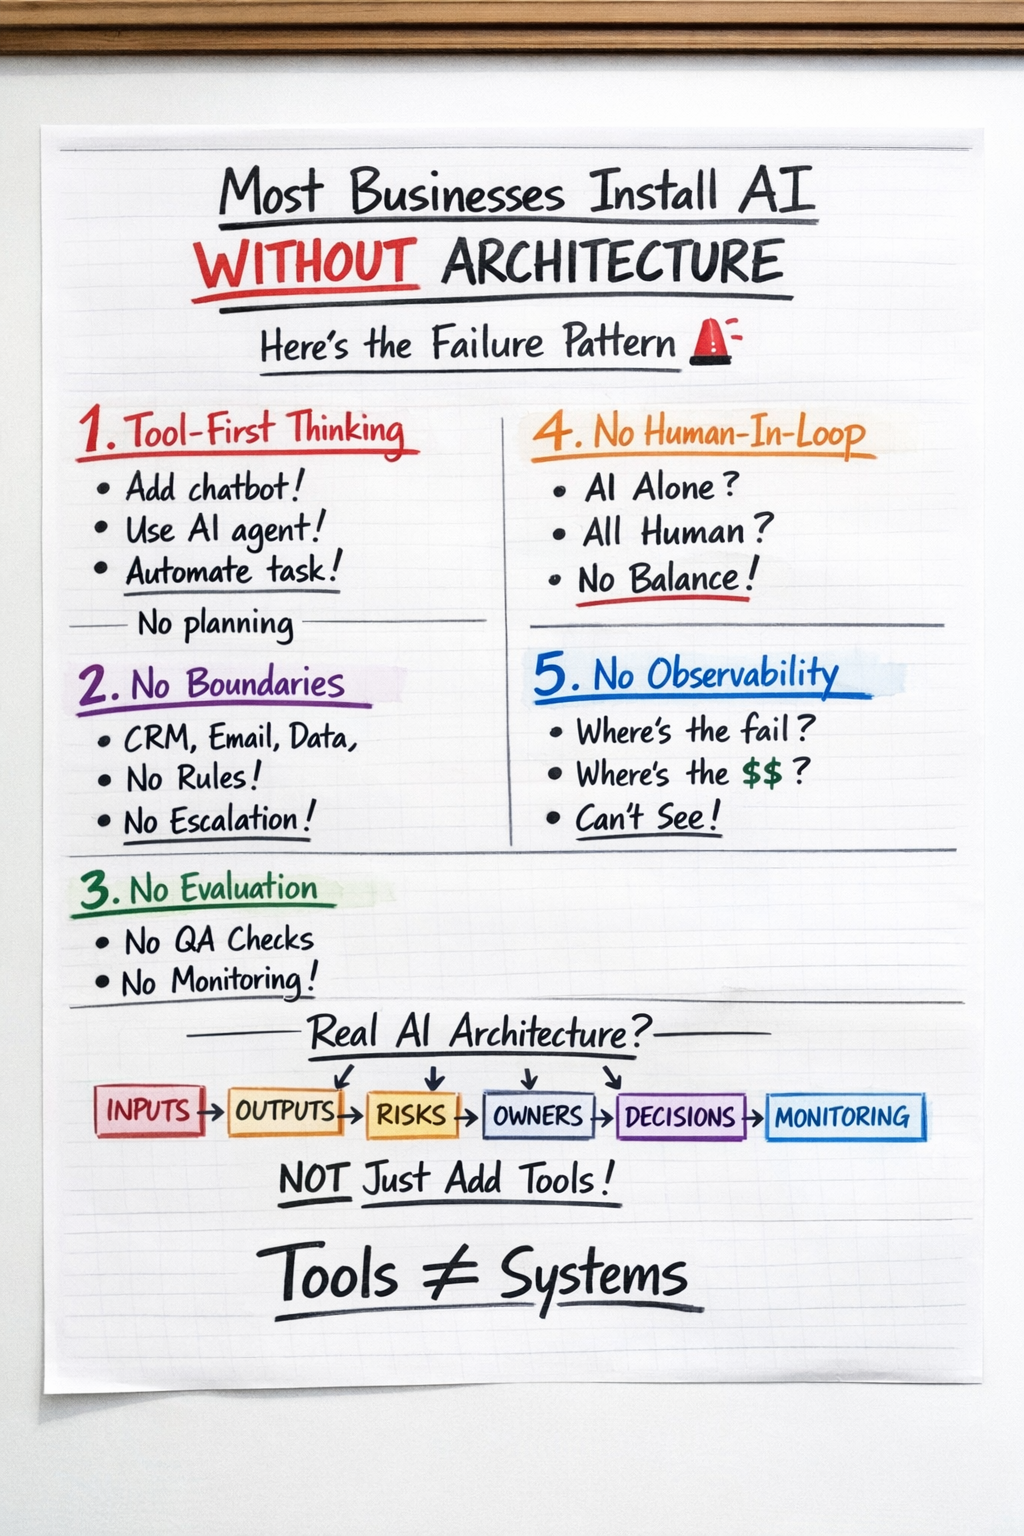 Most Businesses Install AI
WITHOUT ARCHITECTURE
Here's the Failure Pattern
1. Tool-First Thinking
• Add chatbot!
• Use AI agent!
• Automate task!
No planning
2. No Boundaries
• CRM, Email, Data,
• No Rules!
• No Escalation!
3. No Evaluation
• No QA Checks
• No Monitoring!
4. No Human-In-Loop
• AI Alone?
• All Human?
• No Balance!
5. No Observability
• Where's the fail?
• Where's the $$?
• Can't See!
Real AI Architecture?
INPUTS → OUTPUTS → RISKS → OWNERS → DECISIONS → MONITORING
NOT Just Add Tools!
Tools ≠ Systems